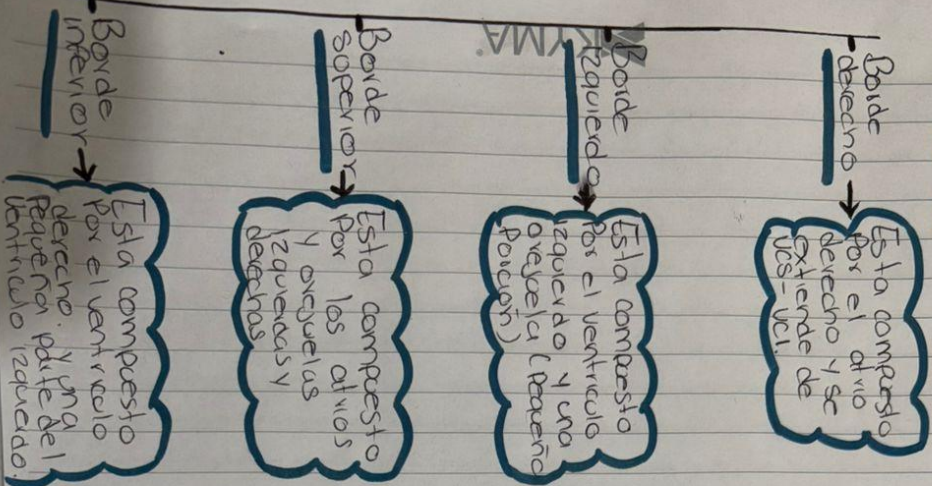 KYMA
Borde
derecho
Esta compuesto
por el atrio
derecho y se
extiende de
VCS - VCI.
Borde
Izquierdo
Esta compuesto
Por el ventriculo
izquierdo y una
orejuela (pequeño
Porción)
Borde
superior
Esta compuesto
Por los atrios
y orejuelas
Izquierdas y
derechas
Borde
inferior
Esta compuesto
Por el ventriculo
derecho. y una
Pequeña parte del
ventriculo izquierdo.